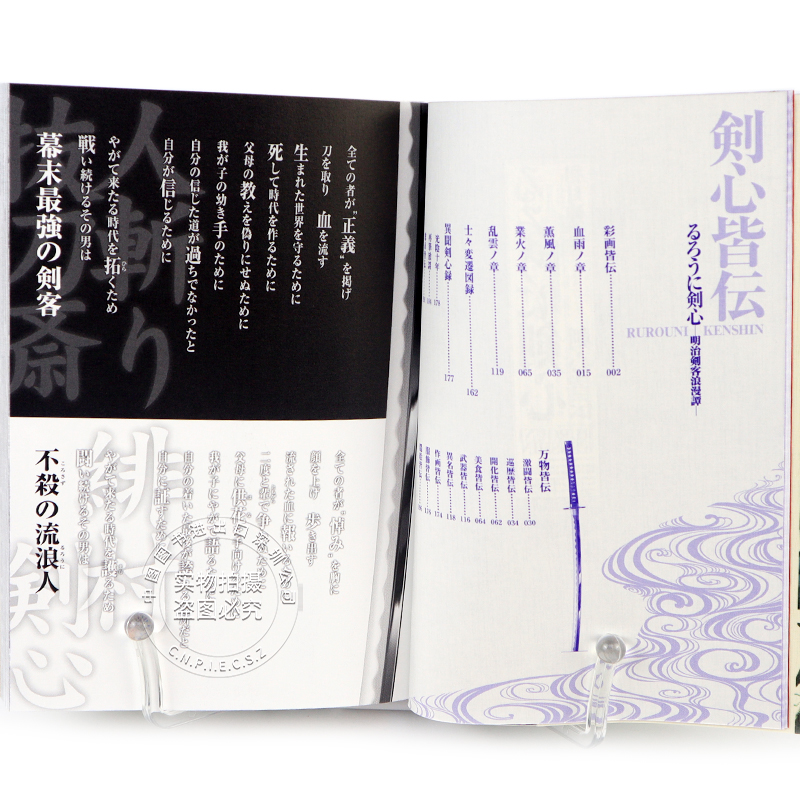 人斬り
抜斎
全ての者が"正義"を掲げ
刀を取り 血を流す
生まれた世界を守るために
死して時代を作るために
父母の教えを偽りにせぬために
我が子の幼き手のために
自分の信じた道が過ちでなかったと
自分が信じるために
やがて来たる時代を拓くため
戦い続けるその男は
幕末最強の剣客
緋村
剣心
全ての者が"悼み"を胸に
顔を上げ 歩き出す
流された血に報い
二度と
父母に
我が子にやが 語る
自分の着いた
自分に
やがて来たる時代を護るため
闘い続けるその男は
不殺の流浪人
ころさず
るろうに
中国图书进出口深圳公司
实物拍摄
盗图必究
C.N.P.I.E.C.S.Z
剣心皆伝
るろうに剣心
―明治剣客浪漫譚―
RUROUNI KENSHIN
彩画皆伝 002
血雨ノ章 015
薫風ノ章 035
業火ノ章 065
乱雲ノ章 119
士々変遷図録 162
異聞剣心録 177
万物皆伝
激闘皆伝 030
巡歴皆伝 034
開化皆伝 062
美食皆伝 064
武器皆伝 116
異名皆伝 118
作画皆伝 174